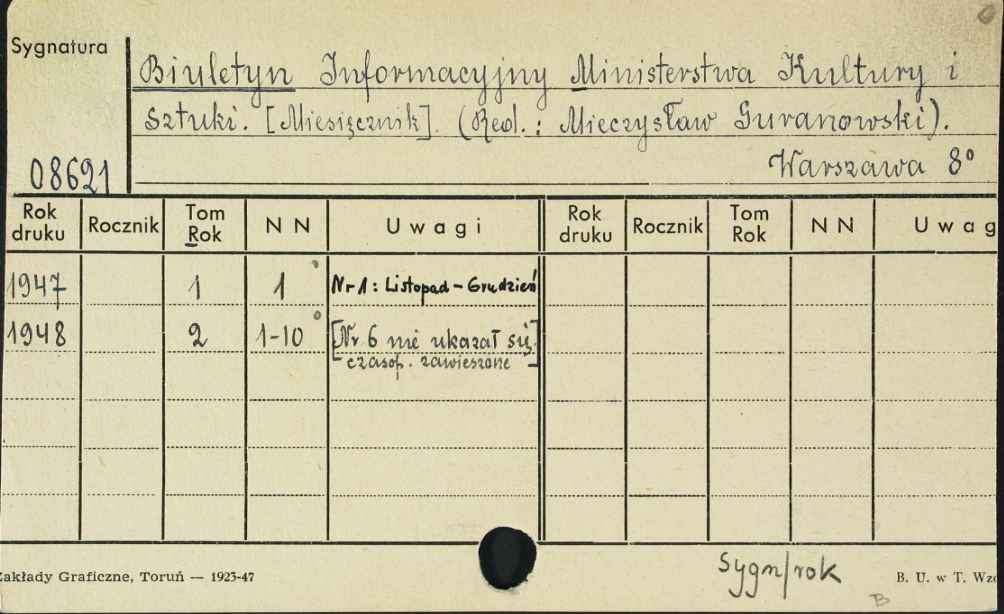 Sygnatura
Biuletyn Informacyjny Ministerstwa Kultury i
Sztuki. [Miesięcznik]. (Red.: Mieczysław Guranowski).
Warszawa 8°
08621
Rok druku Rocznik Tom Rok N N Uwagi Rok druku Rocznik Tom Rok N N Uwag
1947 1 1 Nr 1: Listopad - Grudzień
1948 2 1-10 [Nr 6 nie ukazał się]
czasop. zawieszone
Sygn/rok
Zakłady Graficzne, Toruń — 1923-47 B. U. w T. Wz
B